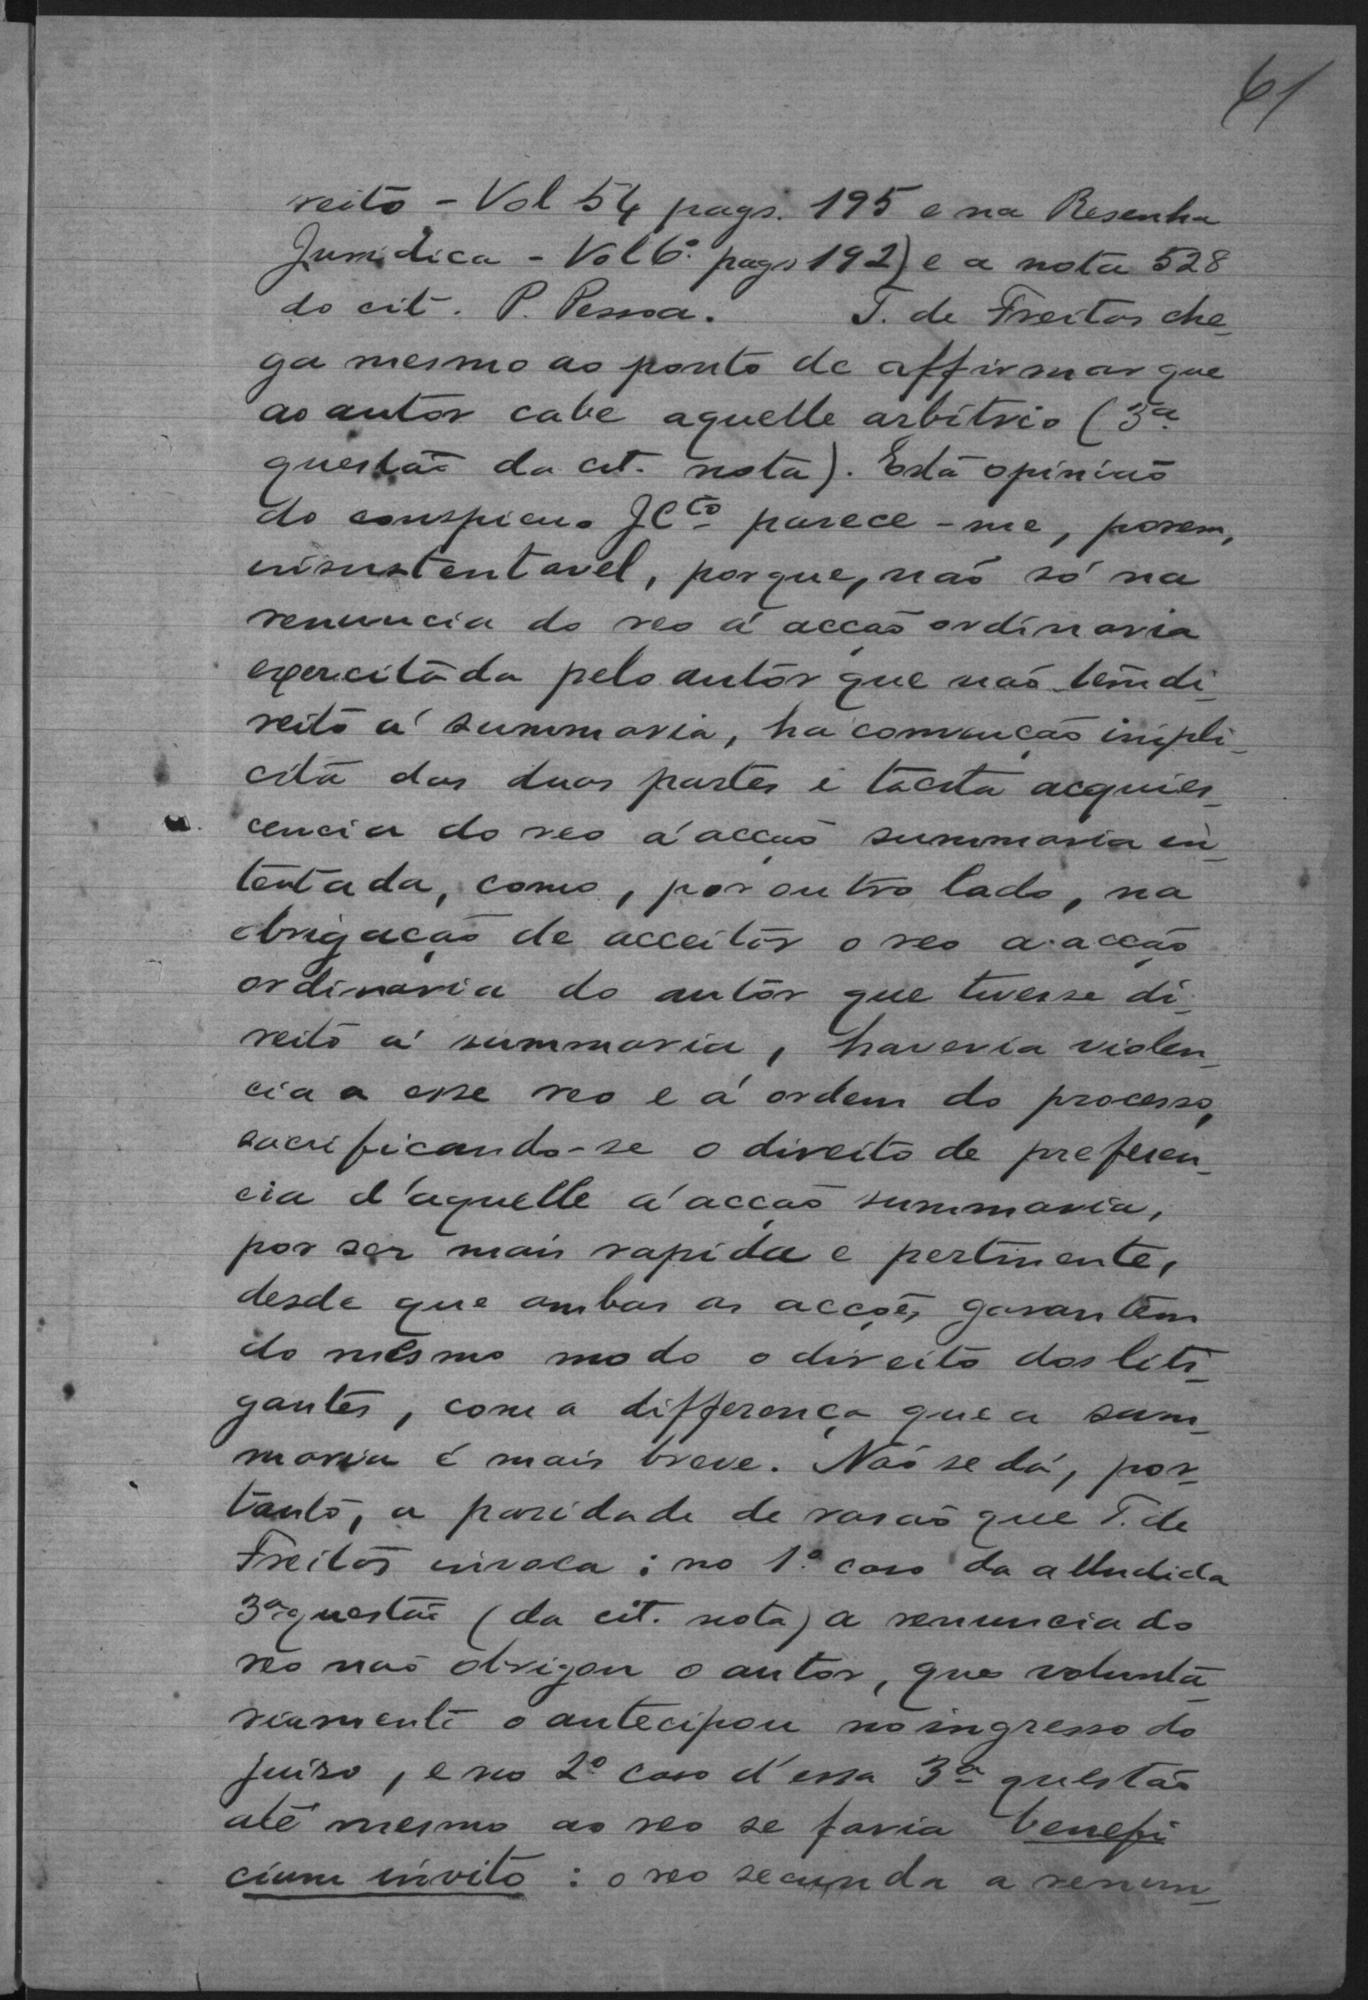 61
reito - Vol 54 pags. 195 e na Resenha
Juridica - Vol 6º pags 192) e a nota 528
do cit. P. Pessoa. T. de Freitas che-
ga mesmo ao ponto de affirmar que
ao autor cabe aquelle arbitrio (3ª
questão da cit. nota). Esta opinião
do conspicuo JCto parece-me, porem,
insustentavel, porque, não só na
renuncia do reo á acção ordinaria
exercitada pelo autor que não tem di-
reito á summaria, ha convenção impli-
cita das duas partes e tacita acquies-
cencia do reo á acção summaria in-
tentada, como, por outro lado, na
obrigação de acceitar o reo a acção
ordinaria do autor que tivesse di-
reito á summaria, haveria violen-
cia a esse reo e á ordem do processo,
sacrificando-se o direito de preferen-
cia d'aquelle á acção summaria,
por ser mais rapida e pertinente,
desde que ambas as acções garantem
do mesmo modo o direito dos liti-
gantes, com a differença que a sum-
maria é mais breve. Não se dá, por-
tanto, a paridade de rasão que T. de
Freitas invoca: no 1º caso da alludida
3ª questão (da cit. nota) a renuncia do
reo não obrigou o autor, que volunta-
riamente o antecipou no ingresso do
juiso, e no 2º caso d'essa 3ª questão
até mesmo ao reo se faria benefi
cium invito: o reo secunda a renun-